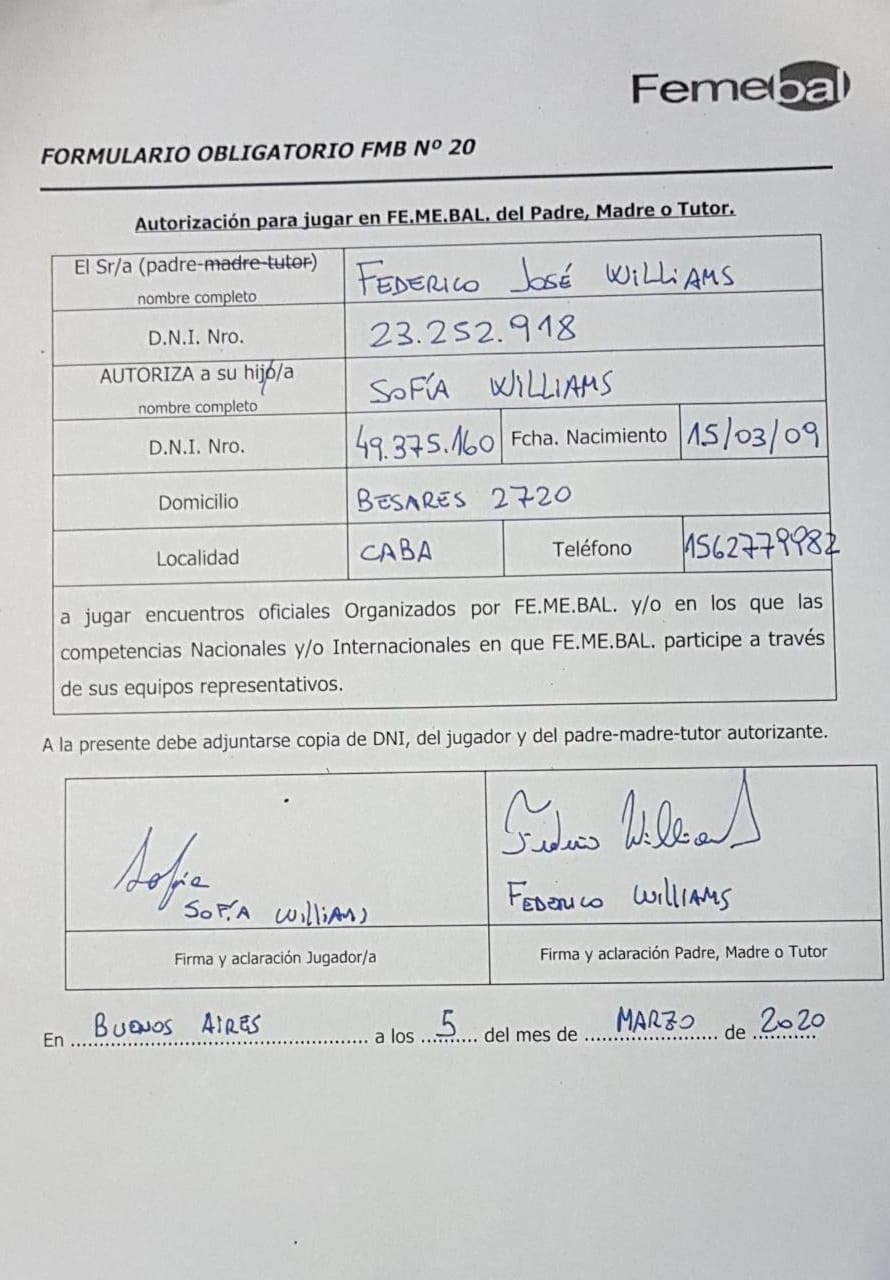 Femebal
FORMULARIO OBLIGATORIO FMB Nº 20
Autorización para jugar en FE.ME.BAL. del Padre, Madre o Tutor.
El Sr/a (padre-madre-tutor)
nombre completo
FEDERICO JOSÉ WILLIAMS
D.N.I. Nro.
23.252.918
AUTORIZA a su hijo/a
nombre completo
SOFÍA WILLIAMS
D.N.I. Nro.
49.375.160
Fcha. Nacimiento
15/03/09
Domicilio
BESARES 2720
Localidad
CABA
Teléfono
1562779982
a jugar encuentros oficiales Organizados por FE.ME.BAL. y/o en los que las
competencias Nacionales y/o Internacionales en que FE.ME.BAL. participe a través
de sus equipos representativos.
A la presente debe adjuntarse copia de DNI, del jugador y del padre-madre-tutor autorizante.
Sofia
SOFÍA WILLIAMS
Federico Williams
FEDERICO WILLIAMS
Firma y aclaración Jugador/a
Firma y aclaración Padre, Madre o Tutor
En BUENOS AIRES a los 5 del mes de MARZO de 2020